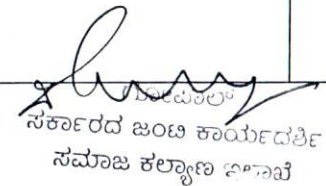 ಸರ್ಕಾರದ ಜಂಟಿ ಕಾರ್ಯದರ್ಶಿ
ಸಮಾಜ ಕಲ್ಯಾಣ ಇಲಾಖೆ